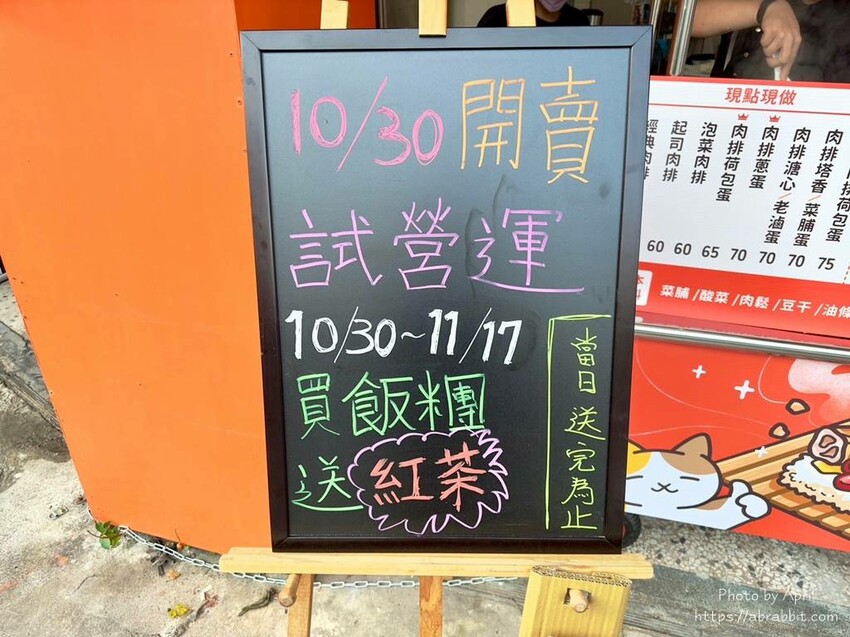 10/30 開賣
試營運
10/30~11/17
買飯糰
送紅茶
當日送完為止
現點現做
起司肉排 60
泡菜肉排 65
肉排荷包蛋 70
肉排蔥蛋 70
肉排溏心/老滷蛋 70
肉排塔香/菜脯蛋 75
菜脯/酸菜/肉鬆/豆干/油條
Photo by April
https://abrabbit.com